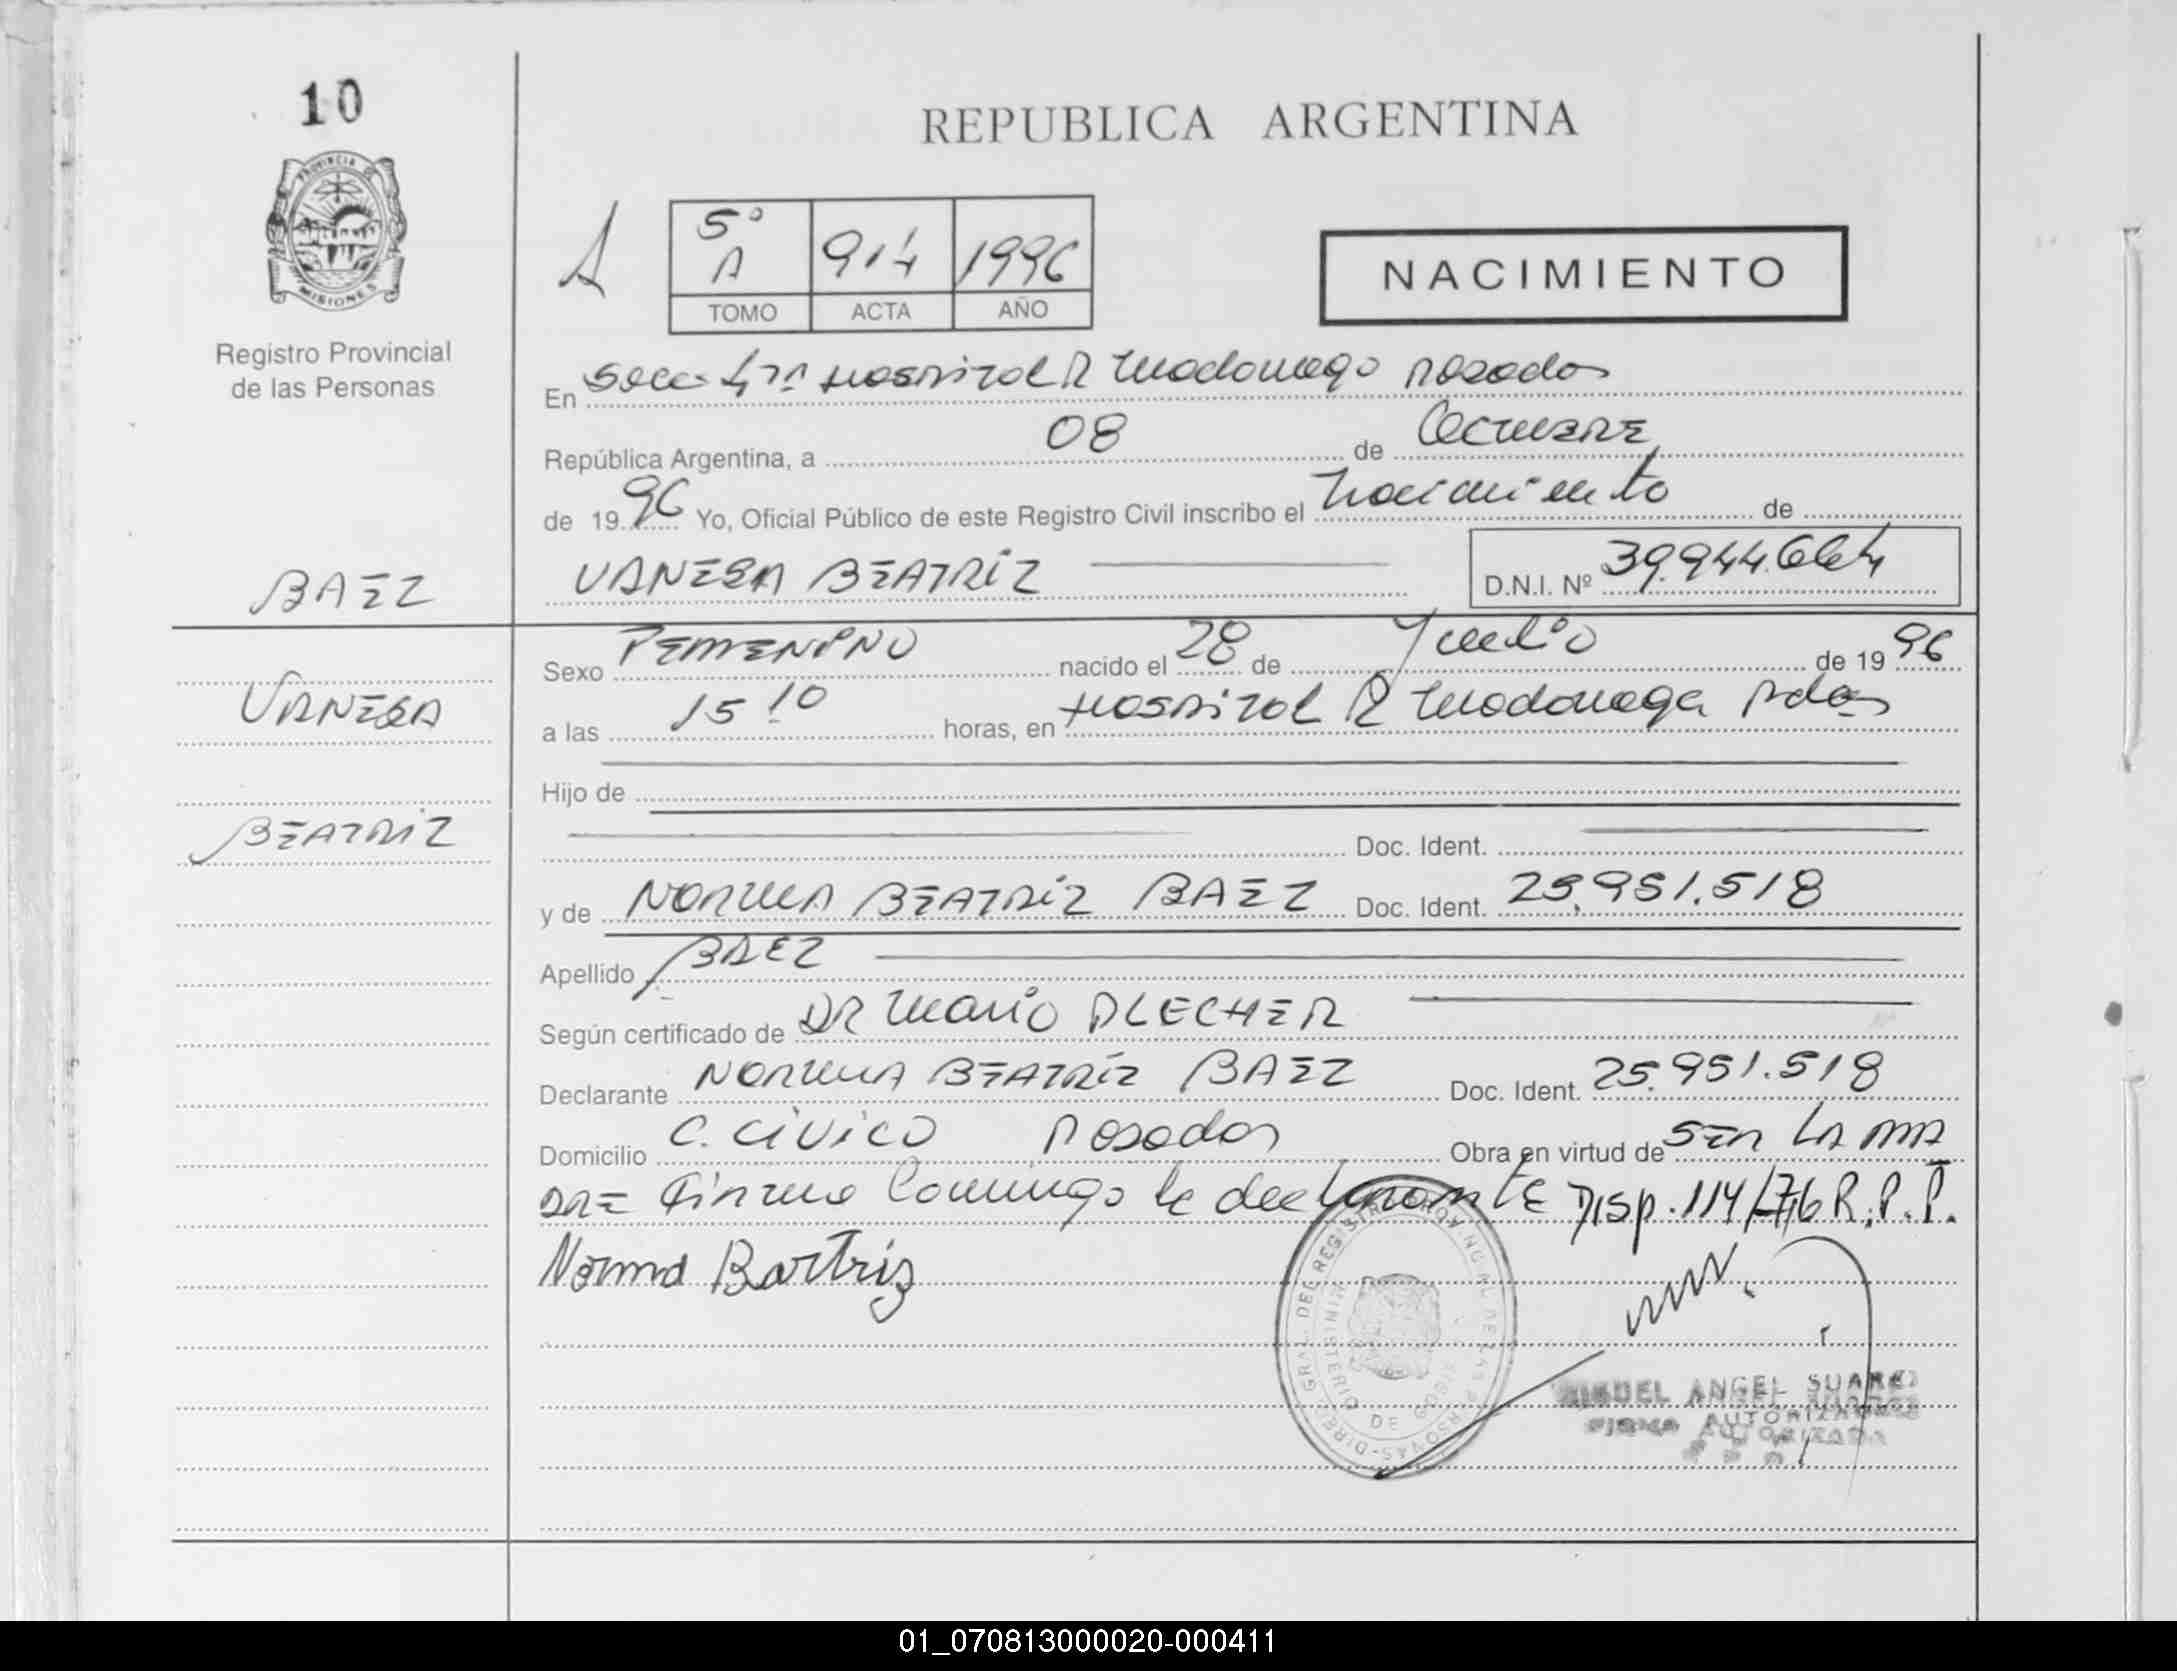 10
REPUBLICA ARGENTINA
PROVINCIA DE
MISIONES
Registro Provincial
de las Personas
A
5º A 914 1996
TOMO ACTA AÑO
NACIMIENTO
En Secc 4ta Hospital R Madariaga Posadas
República Argentina, a 08 de Octubre
de 1996 Yo, Oficial Público de este Registro Civil inscribo el nacimiento de
BAEZ
VANESA BEATRIZ
D.N.I. Nº 39.944.664
Sexo FEMENINO nacido el 28 de Julio de 1996
VANESA
a las 15 10 horas, en Hospital R Madariaga Pdas
Hijo de
BEATRIZ
Doc. Ident.
y de NORMA BEATRIZ BAEZ Doc. Ident. 25.951.518
Apellido BAEZ
Según certificado de DR Mario PLECHER
Declarante NORMA BEATRIZ BAEZ Doc. Ident. 25.951.518
Domicilio C. Civico Posadas Obra en virtud de SER LA MA
DRE Firma Conmigo la declarante Disp. 114/76 R.P.P.
Norma Bartriz
DIREC. GRAL. DEL REGISTRO PROVINCIAL DE LAS PERSONAS
MINISTERIO DE GOBIE
MIGUEL ANGEL SUAREZ
FIRMA AUTORIZADA
01_070813000020-000411